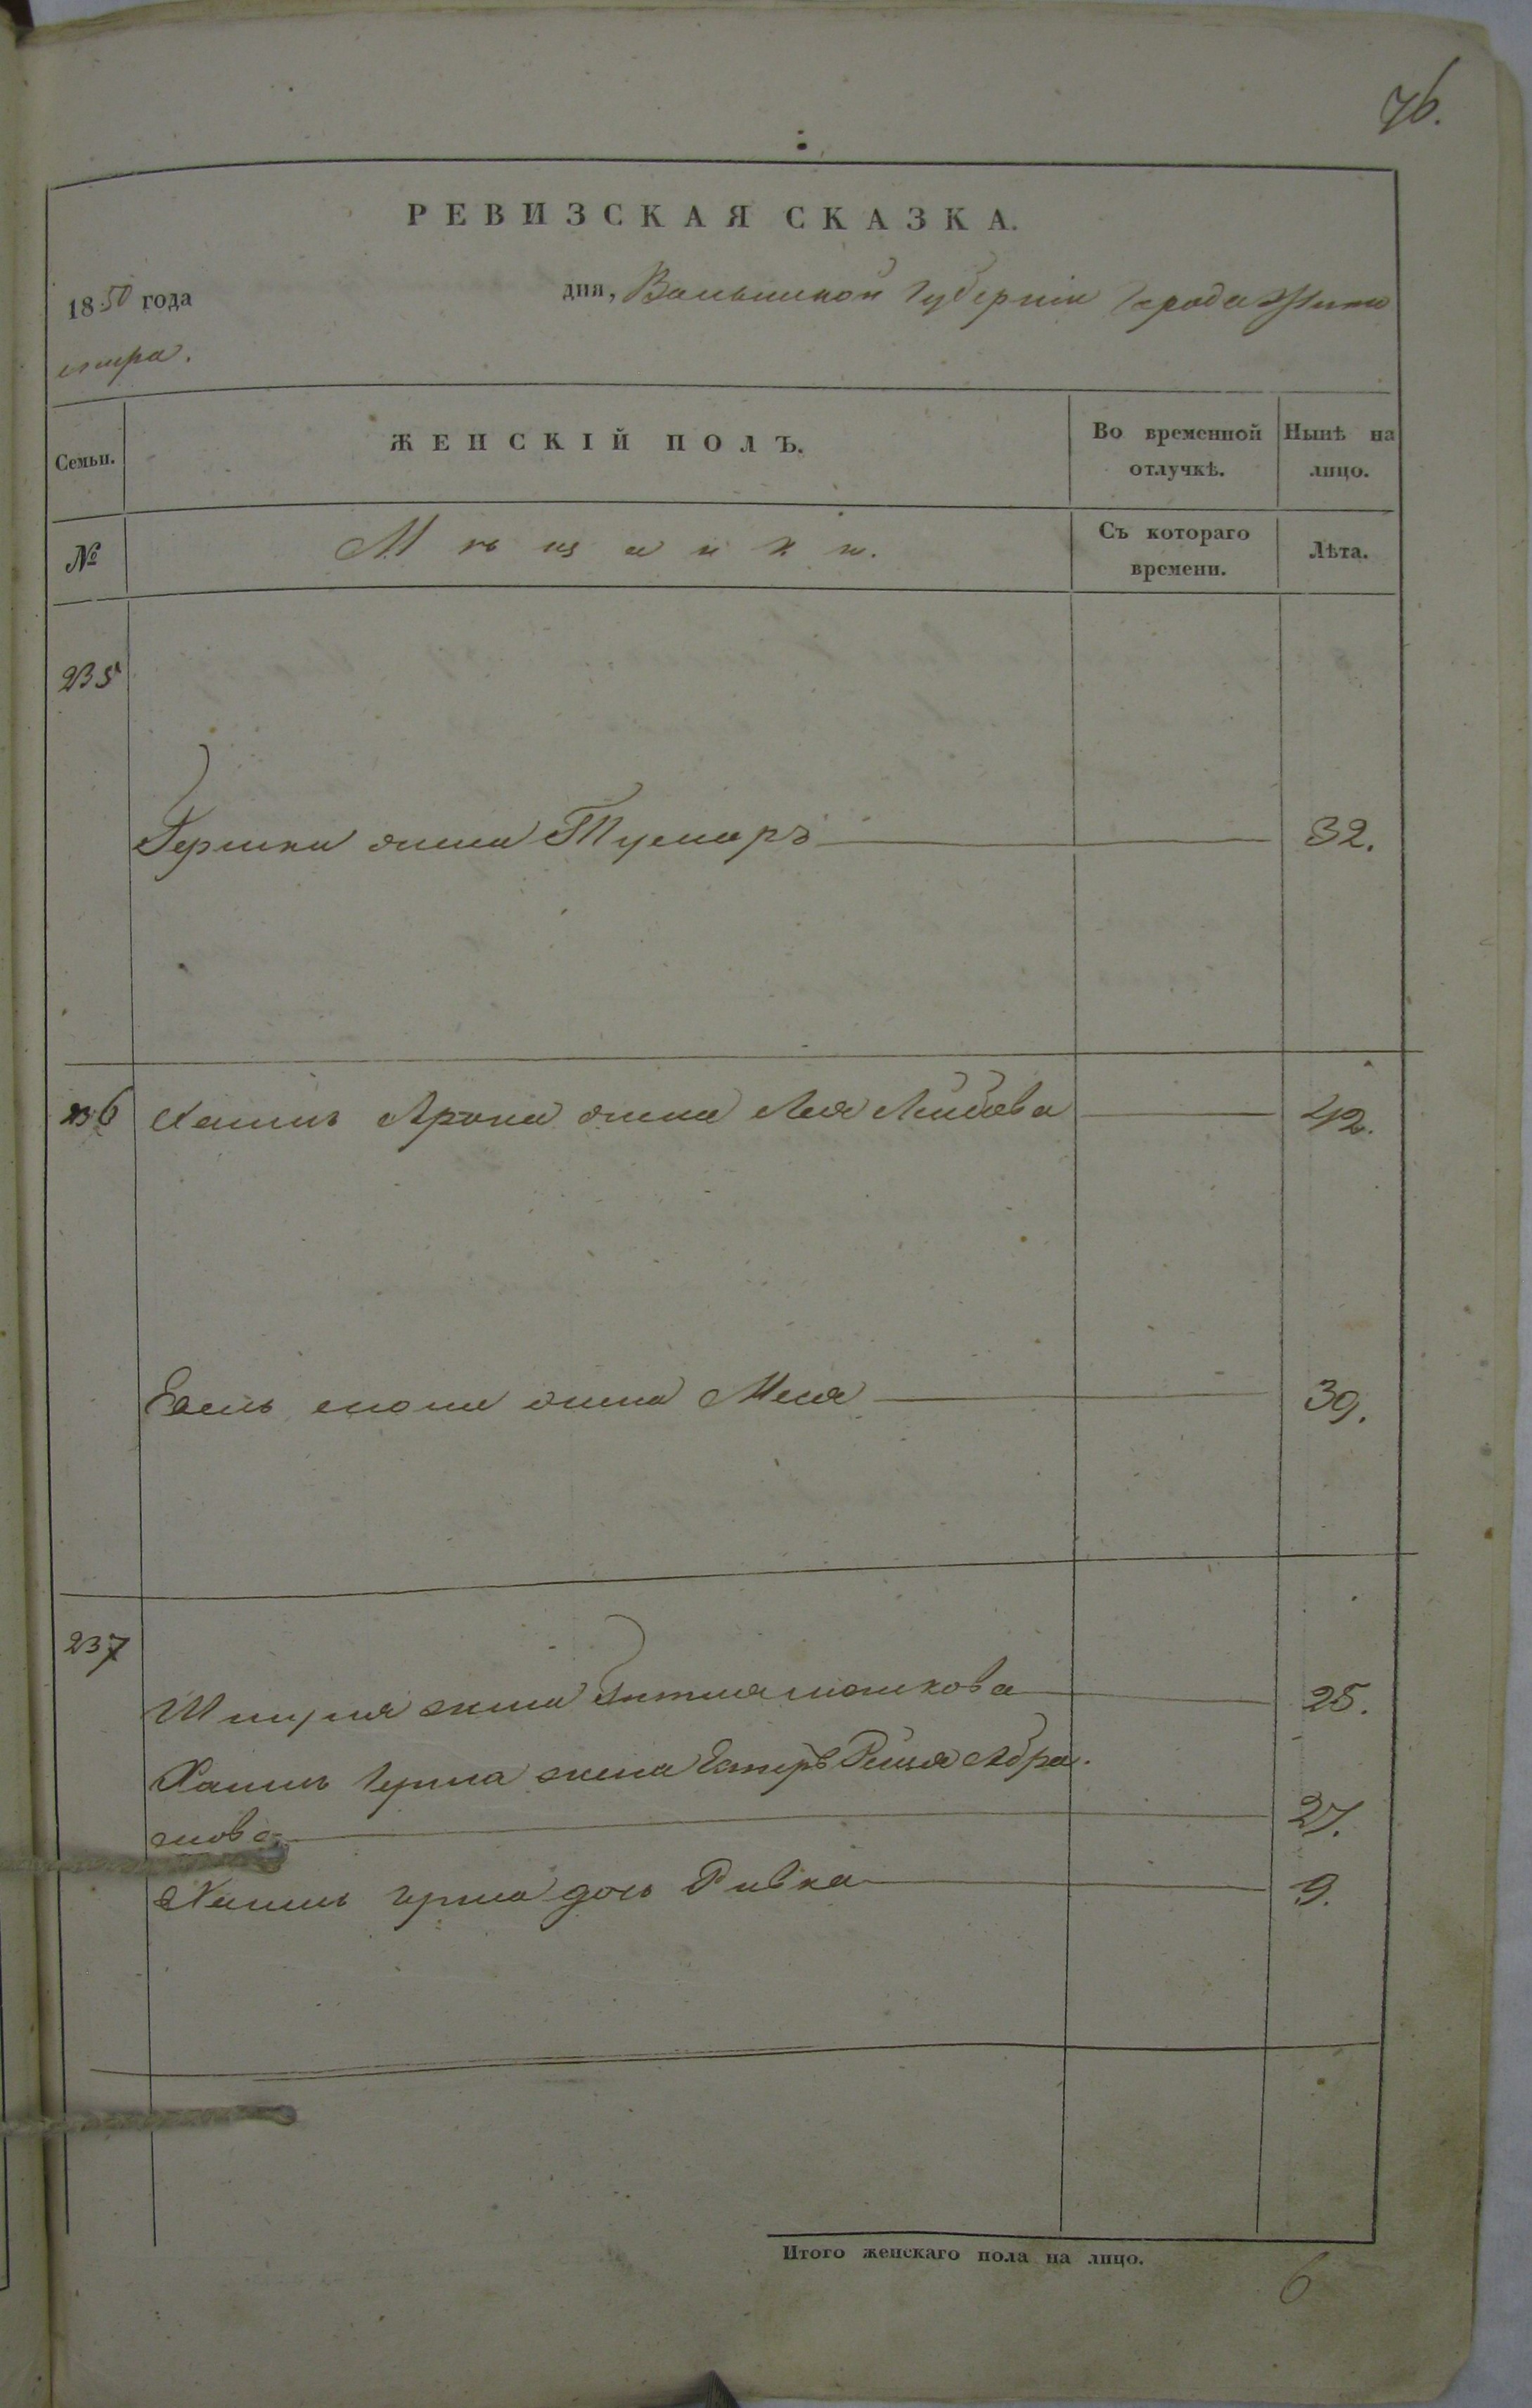 76.
РЕВИЗСКАЯ СКАЗКА.
1850 года дня, Волынской Губерніи Города Жито
мира.
Семьи.
ЖЕНСКІЙ ПОЛЪ.
Во временной отлучкѣ.
Нынѣ на лицо.
№
Мѣщанки.
Съ котораго времени.
Лѣта.
235
Гершка жена 32.
236 Хаима Арона жена Лея Лейбова 42.
жена Меня 39.
237
Шмуля жена 25.
Хаима Герша жена Естеръ Рейзя Абра-
мова 27.
Хаима Герша дочь Ривка 9.
Итого женскаго пола на лицо. 6